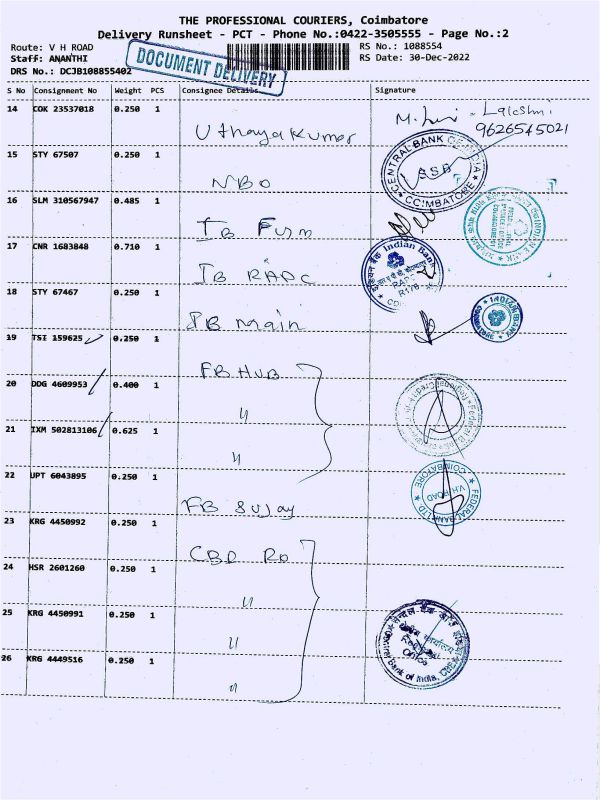 THE PROFESSIONAL COURIERS, Coimbatore
Delivery Runsheet - PCT - Phone No.:0422-3505555 - Page No.:2
Route: V H ROAD RS No.: 1088554
Staff: ANANTHI RS Date: 30-Dec-2022
DRS No.: DCJB108855402
DOCUMENT DELIVERY
S No Consignment No Weight PCS Consignee Details Signature
14 COK 23537018 0.250 1 Uthayakumar Lakshmi
9626545021
15 STY 67507 0.250 1 NBO
CENTRAL BANK OF INDIA
SSB
COIMBATORE
16 SLM 310567947 0.485 1 IB Firm
17 CNR 1683848 0.710 1 IB RAPC
Indian Bank
18 STY 67467 0.250 1 IB main
INDIAN BANK
19 TSI 159625 0.250 1 FB HUB
20 DDG 4609953 0.400 1 "
21 IXM 502813106 0.625 1 "
22 UPT 6043895 0.250 1 FB Sujay
FEDERAL BANK LTD
V.H.ROAD
COIMBATORE
23 KRG 4450992 0.250 1 CBD RO
24 HSR 2601260 0.250 1 "
25 KRG 4450991 0.250 1 "
26 KRG 4449516 0.250 1 "
Central Bank of India, CBE
Office